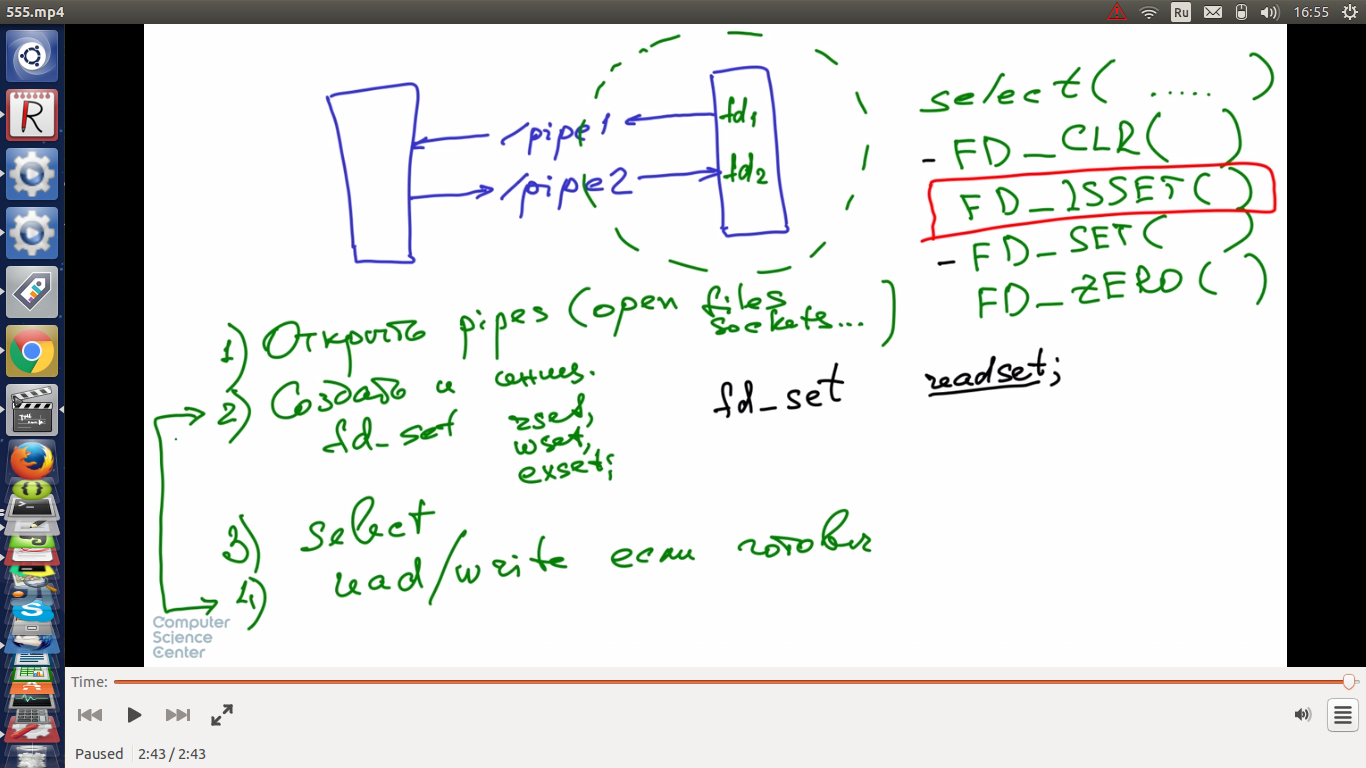 555.mp4
Ru
16:55
/pipe1
/pipe2
fd1
fd2
select( ..... )
- FD_CLR( )
FD_ISSET( )
- FD_SET( )
FD_ZERO( )
1) Открыть pipes (open files
sockets... )
2) Создать и
fd_set rset,
wset,
exset;
fd_set readset;
3) select
4) read/write если готовы
Computer
Science
Center
Time:
Paused 2:43 / 2:43